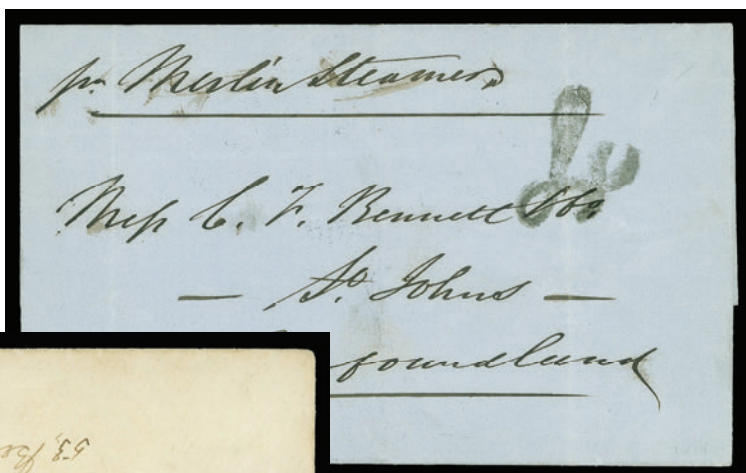 pr. Merlin Steamer
Mess C. F. Bennett & Co.
— St. Johns —
foundland
53, Be